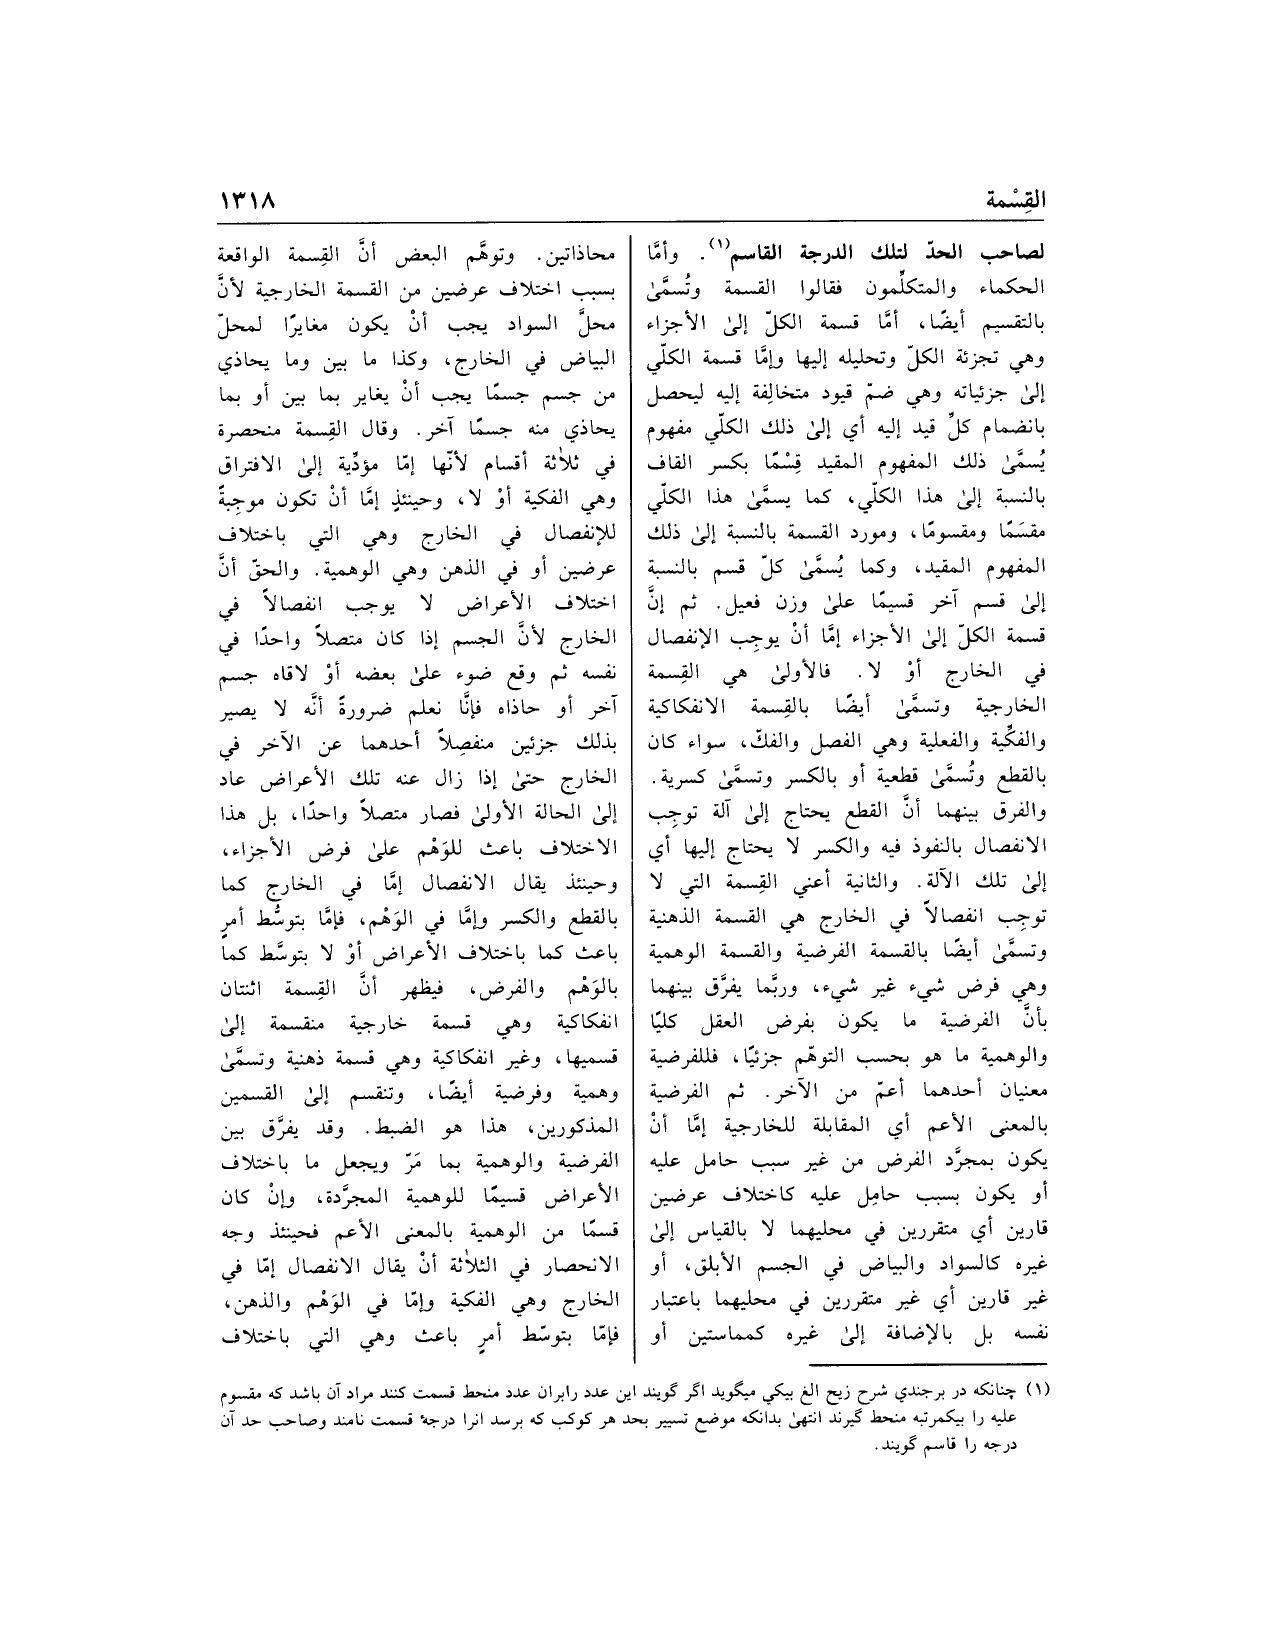 القِسْمة
١٣١٨
لصاحب الحدّ لتلك الدرجة القاسم(١). وأمَّا
الحكماء والمتكلِّمون فقالوا القسمة وتُسمَّىٰ
بالتقسيم أيضًا، أمَّا قسمة الكلّ إلىٰ الأجزاء
وهي تجزئة الكلّ وتحليله إليها وإمَّا قسمة الكلّي
إلىٰ جزئياته وهي ضمّ قيود متخالِفة إليه ليحصل
بانضمام كلِّ قيد إليه أي إلىٰ ذلك الكلّي مفهوم
يُسمَّىٰ ذلك المفهوم المقيد قِسْمًا بكسر القاف
بالنسبة إلىٰ هذا الكلّي، كما يسمَّىٰ هذا الكلّي
مقسَمًا ومقسومًا، ومورد القسمة بالنسبة إلىٰ ذلك
المفهوم المقيد، وكما يُسمَّىٰ كلّ قسم بالنسبة
إلىٰ قسم آخر قسيمًا علىٰ وزن فعيل. ثم إنَّ
قسمة الكلّ إلىٰ الأجزاء إمَّا أنْ يوجِب الإنفصال
في الخارج أوْ لا. فالأولىٰ هي القِسمة
الخارجية وتسمَّىٰ أيضًا بالقِسمة الانفكاكية
والفكِّية والفعلية وهي الفصل والفكّ، سواء كان
بالقطع وتُسمَّىٰ قطعية أو بالكسر وتسمَّىٰ كسرية.
والفرق بينهما أنَّ القطع يحتاج إلىٰ آلة توجِب
الانفصال بالنفوذ فيه والكسر لا يحتاج إليها أي
إلىٰ تلك الآلة. والثانية أعني القِسمة التي لا
توجِب انفصالاً في الخارج هي القسمة الذهنية
وتسمَّىٰ أيضًا بالقسمة الفرضية والقسمة الوهمية
وهي فرض شيء غير شيء، وربَّما يفرَّق بينهما
بأنَّ الفرضية ما يكون بفرض العقل كليًا
والوهمية ما هو بحسب التوهّم جزئيًا، فللفرضية
معنيان أحدهما أعمّ من الآخر. ثم الفرضية
بالمعنى الأعم أي المقابلة للخارجية إمَّا أنْ
يكون بمجرَّد الفرض من غير سبب حامل عليه
أو يكون بسبب حامِل عليه كاختلاف عرضين
قارين أي متقررين في محليهما لا بالقياس إلىٰ
غيره كالسواد والبياض في الجسم الأبلق، أو
غير قارين أي غير متقررين في محليهما باعتبار
نفسه بل بالإضافة إلىٰ غيره كمماستين أو
محاذاتين. وتوهَّم البعض أنَّ القِسمة الواقعة
بسبب اختلاف عرضين من القسمة الخارجية لأنَّ
محلَّ السواد يجب أنْ يكون مغايرًا لمحلّ
البياض في الخارج، وكذا ما بين وما يحاذي
من جسم جسمًا يجب أنْ يغاير بما بين أو بما
يحاذي منه جسمًا آخر. وقال القِسمة منحصرة
في ثلاثة أقسام لأنّها إمّا مؤدِّية إلىٰ الافتراق
وهي الفكية أوْ لا، وحينئذٍ إمَّا أنْ تكون موجِبةً
للإنفصال في الخارج وهي التي باختلاف
عرضين أو في الذهن وهي الوهمية. والحقّ أنَّ
اختلاف الأعراض لا يوجب انفصالاً في
الخارج لأنَّ الجسم إذا كان متصلاً واحدًا في
نفسه ثم وقع ضوء علىٰ بعضه أوْ لاقاه جسم
آخر أو حاذاه فإنَّا نعلم ضرورةً أنَّه لا يصير
بذلك جزئين منفصِلاً أحدهما عن الآخر في
الخارج حتىٰ إذا زال عنه تلك الأعراض عاد
إلىٰ الحالة الأولىٰ فصار متصلاً واحدًا، بل هذا
الاختلاف باعث للوَهْم علىٰ فرض الأجزاء،
وحينئذ يقال الانفصال إمَّا في الخارج كما
بالقطع والكسر وإمَّا في الوَهْم، فإمَّا بتوسُّط أمرٍ
باعث كما باختلاف الأعراض أوْ لا بتوسَّط كما
بالوَهْم والفرض، فيظهر أنَّ القِسمة اثنتان
انفكاكية وهي قسمة خارجية منقسمة إلىٰ
قسميها، وغير انفكاكية وهي قسمة ذهنية وتسمَّىٰ
وهمية وفرضية أيضًا، وتنقسم إلىٰ القسمين
المذكورين، هذا هو الضبط. وقد يفرَّق بين
الفرضية والوهمية بما مَرّ ويجعل ما باختلاف
الأعراض قسيمًا للوهمية المجرَّدة، وإنْ كان
قسمًا من الوهمية بالمعنى الأعم فحينئذ وجه
الانحصار في الثلاثة أنْ يقال الانفصال إمّا في
الخارج وهي الفكية وإمّا في الوَهْم والذهن،
فإمّا بتوسّط أمرٍ باعث وهي التي باختلاف
(١) چنانكه در برجندي شرح زيج الغ بيكي ميگويد اگر گويند اين عدد رابران عدد منحط قسمت كنند مراد آن باشد كه مقسوم
عليه را بيكمرتبه منحط گيرند انتهىٰ بدانكه موضع تسيير بحد هر كوكب كه برسد انرا درجهٔ قسمت نامند وصاحب حد آن
درجه را قاسم گويند.